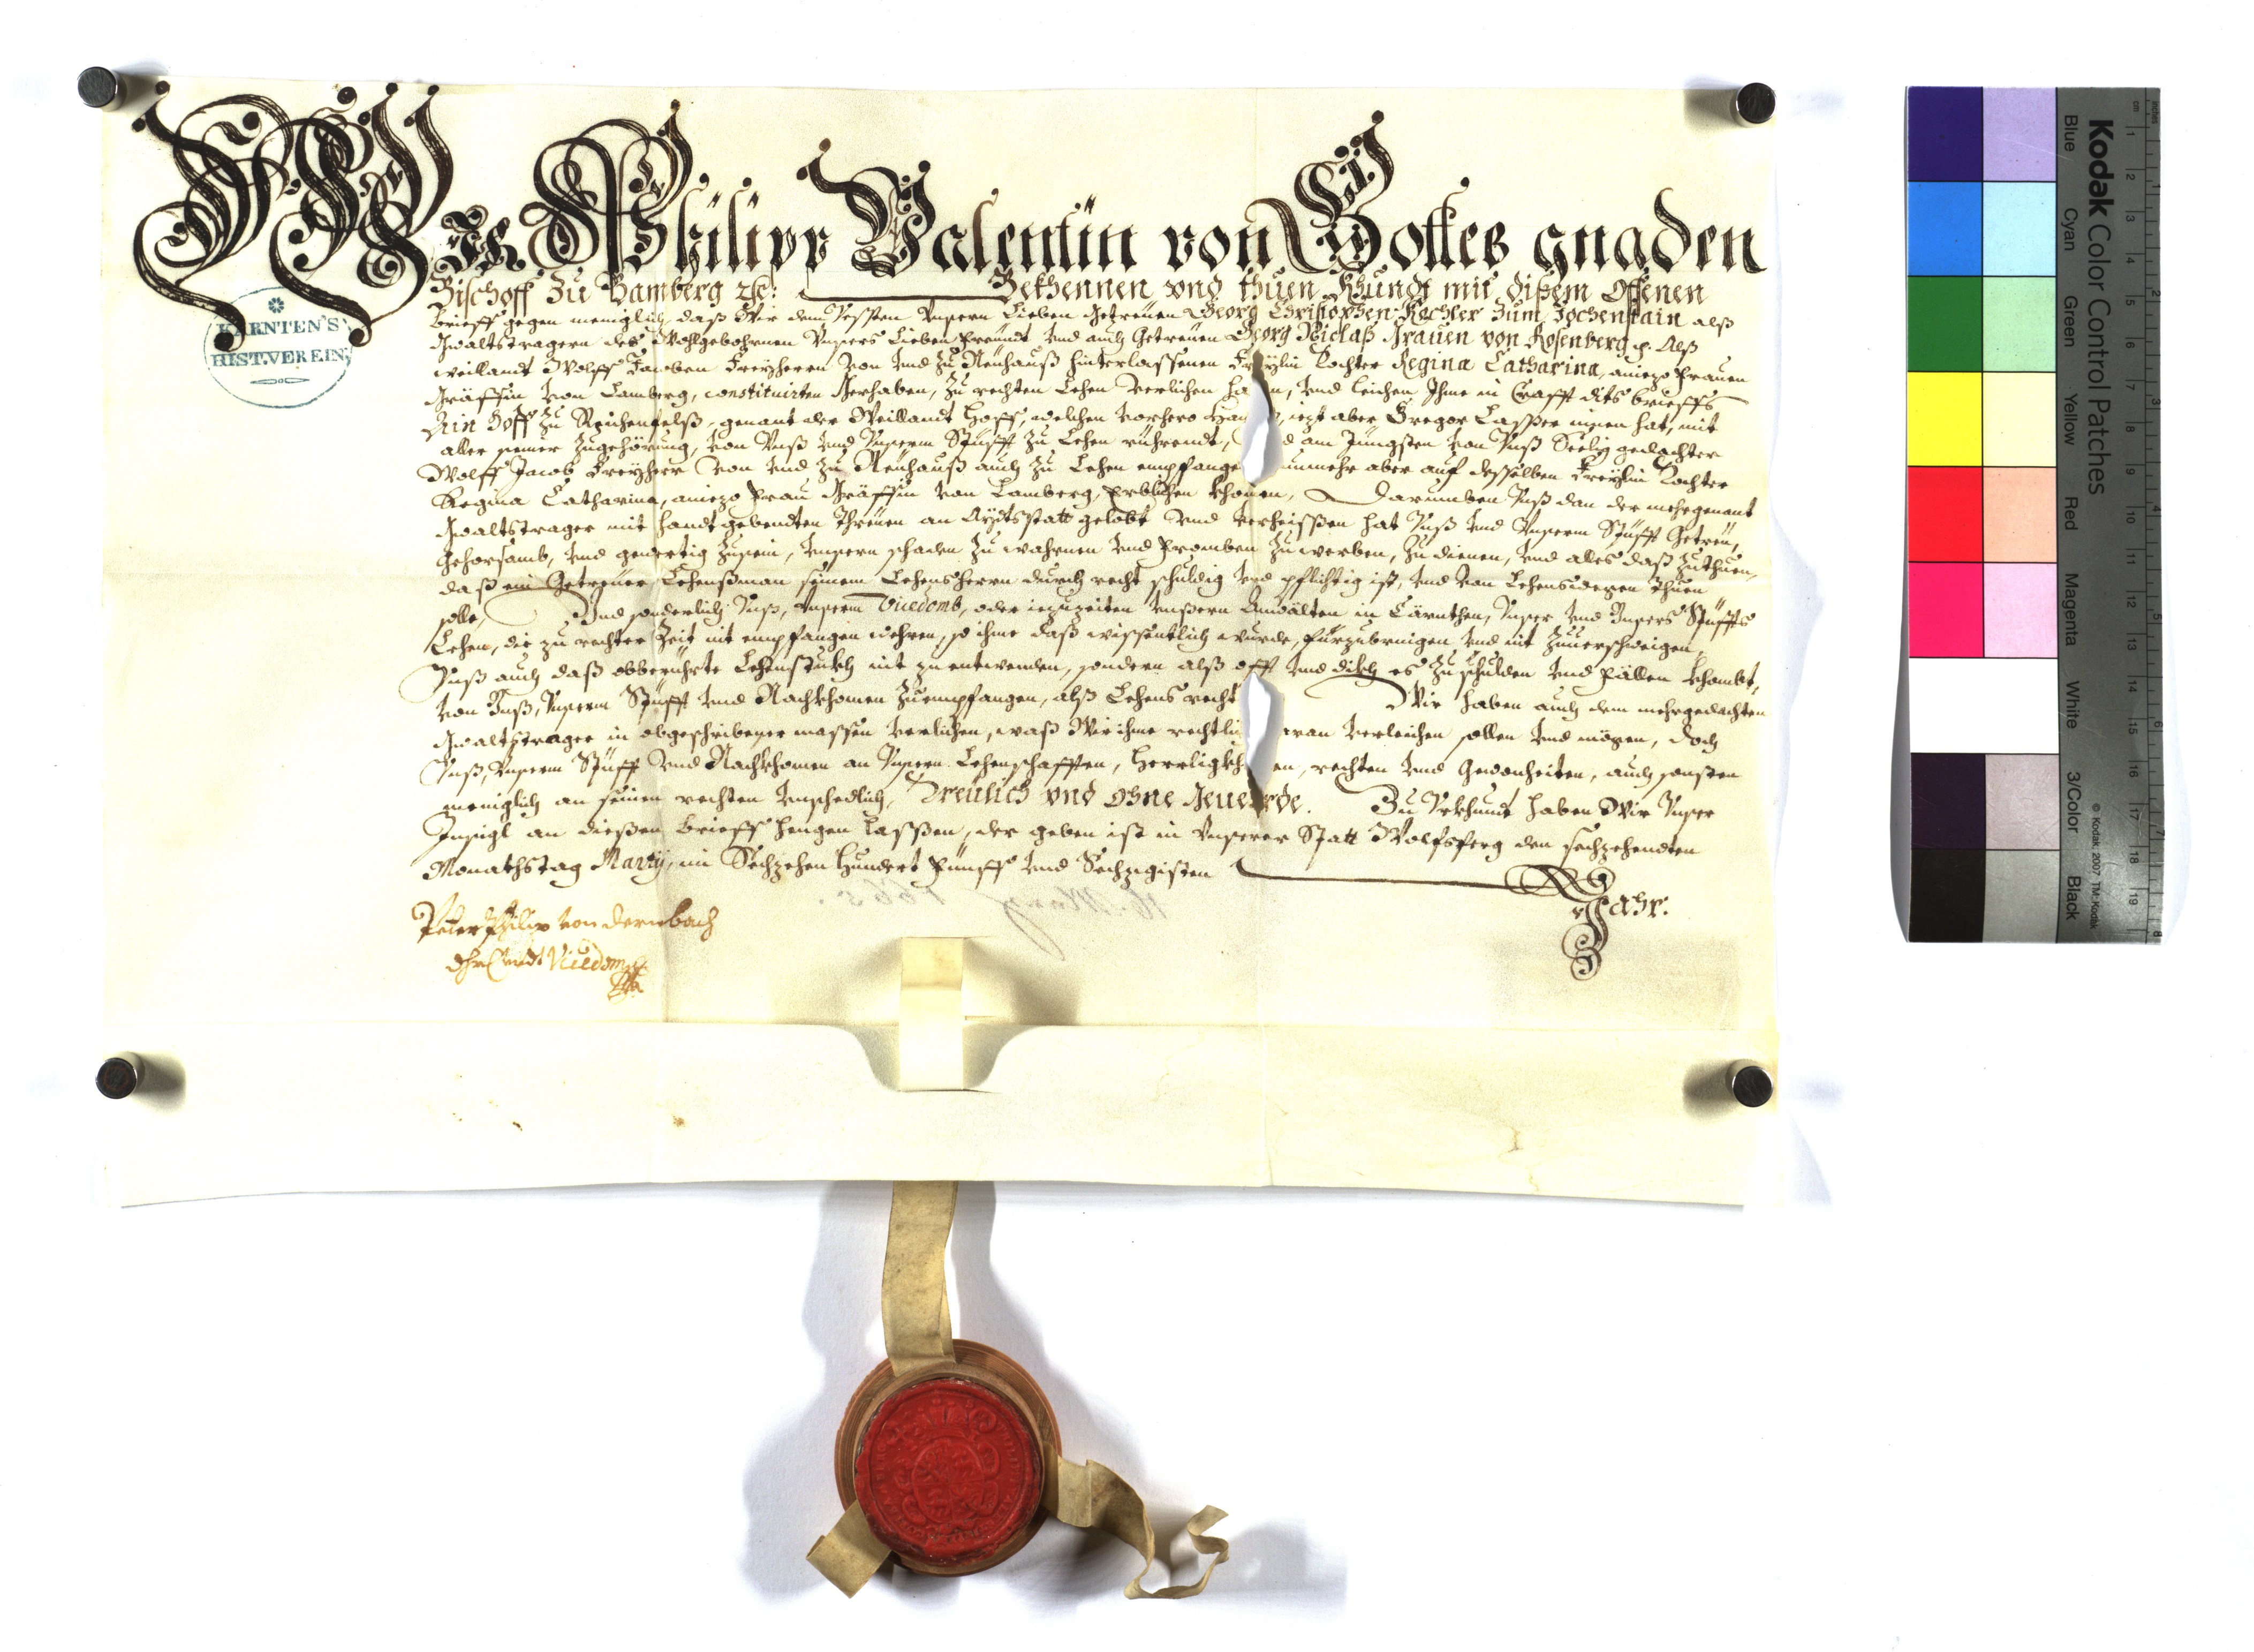 WIR Philipp Valentin von Gottes gnaden
Bischoff Zu Bamberg etc: Bekhennen vnd thuen Khundt mit dißem Offenen
Brieff gegen meniglich, daß Wir dem Vessten Vnsern Lieben Getreuen Georg Christophen Kochler Zum Jochenstain alß
Gwaltstragern des Wohlgebohrnen Vnsers Lieben Freundt vnd auch Getreuen Georg Niclaß Grauen von Rosenberg etc. Alß
weillandt Wolff Jacoben Freyherrn von vnd zu Neuhauß hinterlassenen Freylin Tochter Regina Catharina, aniezo Frauen
Gräffin von Lamberg, constituirten Gerhaben, zu rechten Lehen verlichen ha n, vnd leichen Ihme in Crafft dits brieffs,
Ain Hoff zu Reichenfelß, genant der Weillandt Hoff, welchen vorhero Han , iezt aber Gregor Casser innen hat, mit
aller seiner Zugehörung, von Vnß vnd Vnserm Stüfft zu Lehen rührendt, d am Jüngsten von Vnß Seelig gedachter
Wolff Jacob Freyherr von vnd zu Neuhauß auch zu Lehen empfange nunmehr aber auf desselben Freylin Tochter
Regina Catharina, aniezo Frau Gräffin von Lamberg, Erblichen khomen, Darumben Vnß dan der mehrgenant
Gwaltstrager mit handtgebendten Threuen an Aydtsstatt gelobt vnd verheissen hat Vnß vnd Vnserm Stüfft Getreu,
Gehorsamb, vnd gewertig zusein, vnsern schaden zu wahrnen vnd Fromben zu werben, zu dienen, vnd alles daß zuthuen,
daß ein Getreuer Lehenßman seinem Lehensherrn durch recht schuldig vnd pflichtig ist, vnd von Lehenswegen thuen
solle, Vnd sonderlich Vnß, Vnserm Vicedomb, oder iezuzeiten vnßern Anwälten in Cärnthen, Vnser vnd Vnsers Stüffts
Lehen, die zu rechter Zeit nit empfangen wehren, so ihme daß wissentlich wurde, fürzubringen vnd nit zuuerschweigen,
Vnß auch daß obberührte Lehenstukh nit zu entwenden, sondern alß offt vnd dikh es zu schulden vnd Fällen khombt,
von Vnß, Vnserm Stüfft vnd Nachkhomen zuempfangen, alß Lehens recht Wir haben auch dem mehrgedachten
Gwaltstrager in obgeschribener massen verlichen, waß Wir ihme rechtlich aran verleichen sollen vnd mögen, doch
Vnß, Vnserm Stüfft vnd Nachkhomen an Vnsern Lehenschafften, Herrligkh en, rechten vnd Gewonheiten, auch sonsten
meniglich an seinen rechten vnschedlich, Dreulich vnd ohne Geuerde. Zu Vrkhundt haben Wir Vnser
Insigl an dießen Brieff hengen lassen, der geben ist in Vnserer Statt Wolfsperg den sechzehendten
Monathstag Martij, im Sechzehen Hundert Fünff vnd Sechzigisten
Jahr:
Peter Philip von Dernbach
Vicedom
KÄRNTEN'S
HIST. VEREIN
Kodak Color Control Patches
Blue Cyan Green Yellow Red Magenta White 3/Color Black
© Kodak, 2007 TM: Kodak
cm 1 2 3 4 5 6 7 8 9 10 11 12 13 14 15 16 17 18 19
inches 1 2 3 4 5 6 7 8